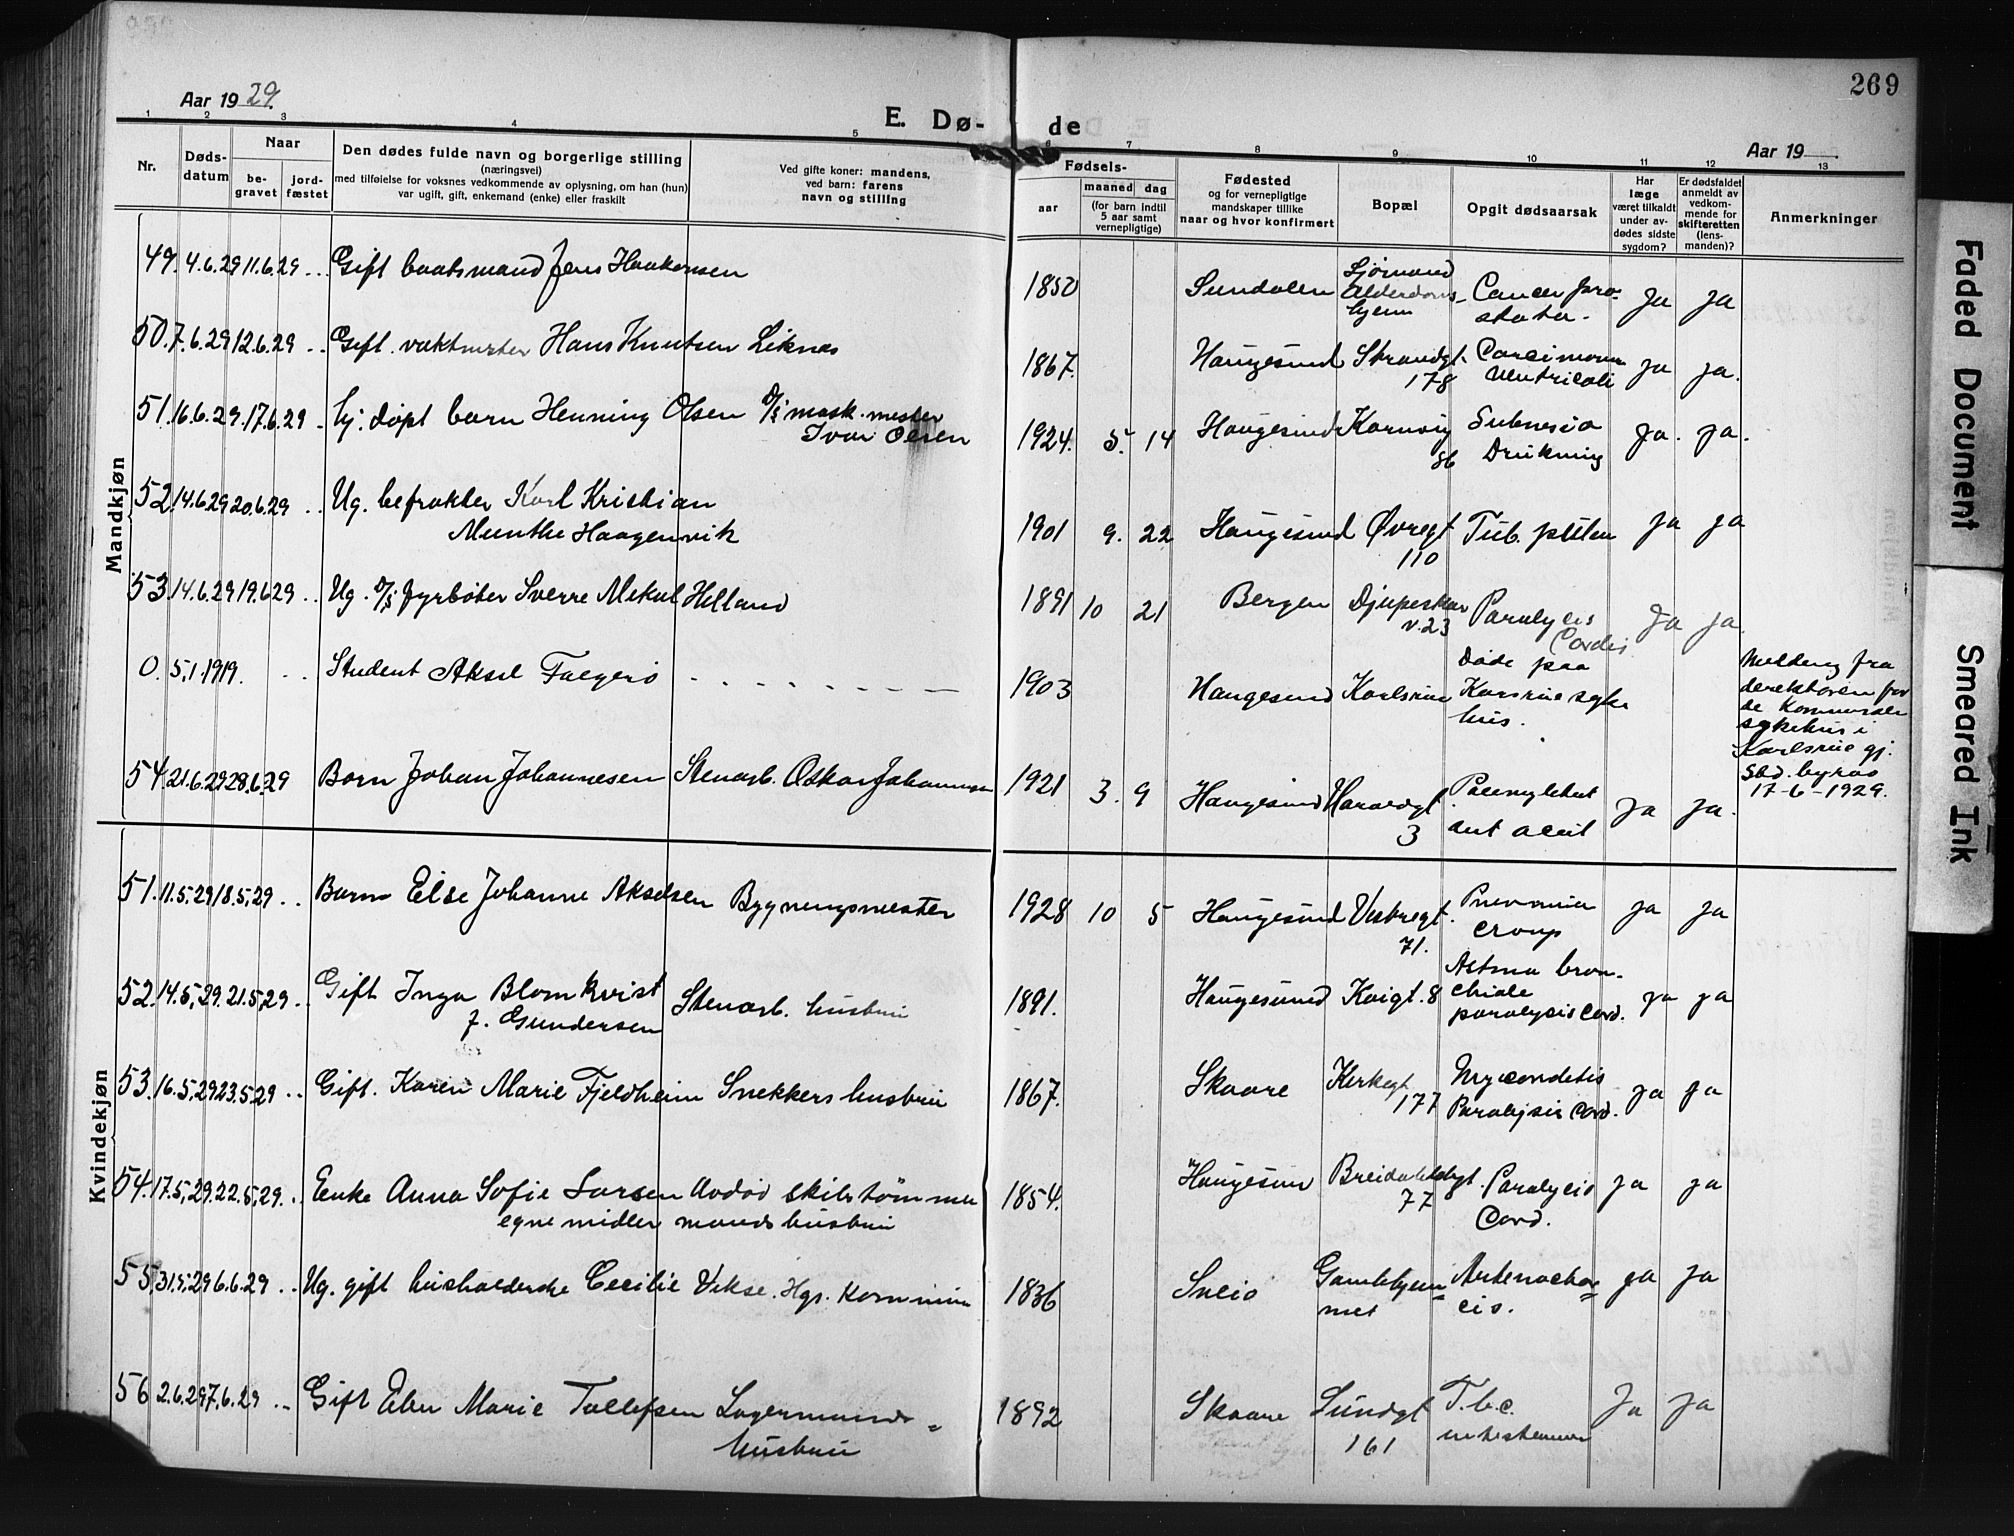 269
Aar 1929.
E. Dø-
de
Aar 19
1 2 3 4 5 6 7 8 9 10 11 12 13
Nr.
Døds-
datum
Naar
be-
gravet
jord-
fæstet
Den dødes fulde navn og borgerlige stilling
(næringsvei)
med tilføielse for voksnes vedkommende av oplysning, om han (hun)
var ugift, gift, enkemand (enke) eller fraskilt
Ved gifte koner: mandens,
ved barn: farens
navn og stilling
Fødsels-
aar
maaned dag
(for barn indtil
5 aar samt
vernepligtige)
Fødested
og for vernepligtige
mandskaper tillike
naar og hvor konfirmert
Bopæl
Opgit dødsaarsak
Har
læge
været tilkaldt
under av-
dødes sidste
sygdom?
Er dødsfaldet
anmeldt av
vedkom-
mende for
skifteretten
(lens-
manden)?
Anmerkninger
Mandkjøn
49. 4.6.29 11.6.29 Gift baatsmand Jens Haakonsen 1850 Sundalen Sjømand
Alderdoms-
hjem
Cancer pro-
stata. Ja Ja
50. 7.6.29 12.6.29 Gift. vaktmester Hans Knutsen Liknes 1867. Haugesund Strandgt.
178
Carcinoma
Ventricoli Ja Ja.
51. 16.6.29. 17.6.29 hj. døpt barn Henning Olsen D/S mask. mester
Ivar Olsen
1924. 5. 14 Haugesund Karmsg
86
Submersio
Drukning Ja. Ja.
52. 14.6.29 20.6.29 Ug. befrakter Karl Kristian
Munthe Haagenvik
1901 9. 22 Haugesund Øvregt
110
Tub. pulm Ja Ja
53. 14.6.29 19.6.29 Ug. D/S fyrbøter Sverre Mekal Helland 1891 10 21 Bergen Djupeskar
v. 23
Paralysis
Cordis Ja Ja.
0. 5.1.1919. Student Aksel Falgerø 1903 Haugesund Karlsrue Døde paa
Karsrue syke
hus.
Melding fra
derektøren for
de kommunale
sykehus i
Karlsrue gj.
Sbd. byraa
17-6-1929.
54. 21.6.29 28.6.29 Barn Johan Johannesen Stenarb. Oskar Johannesen 1921 3. 9 Haugesund Haraldgt
3
acut Ja Ja.
Kvindekjøn
51. 11.5.29 18.5.29 Barn Else Johanne Akselsen Bygningsmester 1928 10 5 Haugesund Vestregt.
71.
Pnevmonia
croup Ja Ja
52. 14.5.29. 21.5.29 Gift Inga Blomkvist
f. Gundersen
Stenarb. hustru 1891. Haugesund Kaigt. 8 Astma bron-
chiale
paralysis Cord. Ja Ja
53. 16.5.29 23.5.29 Gift. Karen Marie Fjeldheim Snekkers hustru 1867. Skaare Kirkegt
177
Mycorditis
Paralysis Cord. Ja Ja
54. 17.5.29. 22.5.29. Enke Anna Sofie Larsen
egne midler
Avdød skibstømmer
mands hustru
1854. Haugesund Breidablikgt.
77
Paralysis
Cord. Ja Ja
55. 31.5.29 6.6.29 Ug. gift husholderske Cecilie Vikse. Hgs. Kommune 1836 Sveio Gamlehjem=
met
Arteriosclor=
cis. Ja Ja
56 2.6.29 7.6.29 Gift Elen Marie Tollefsen Lagermands=
hustru
1892 Skaare Sundgt
161
T.b.c.
intestenum Ja Ja
Faded Document
Smeared Ink